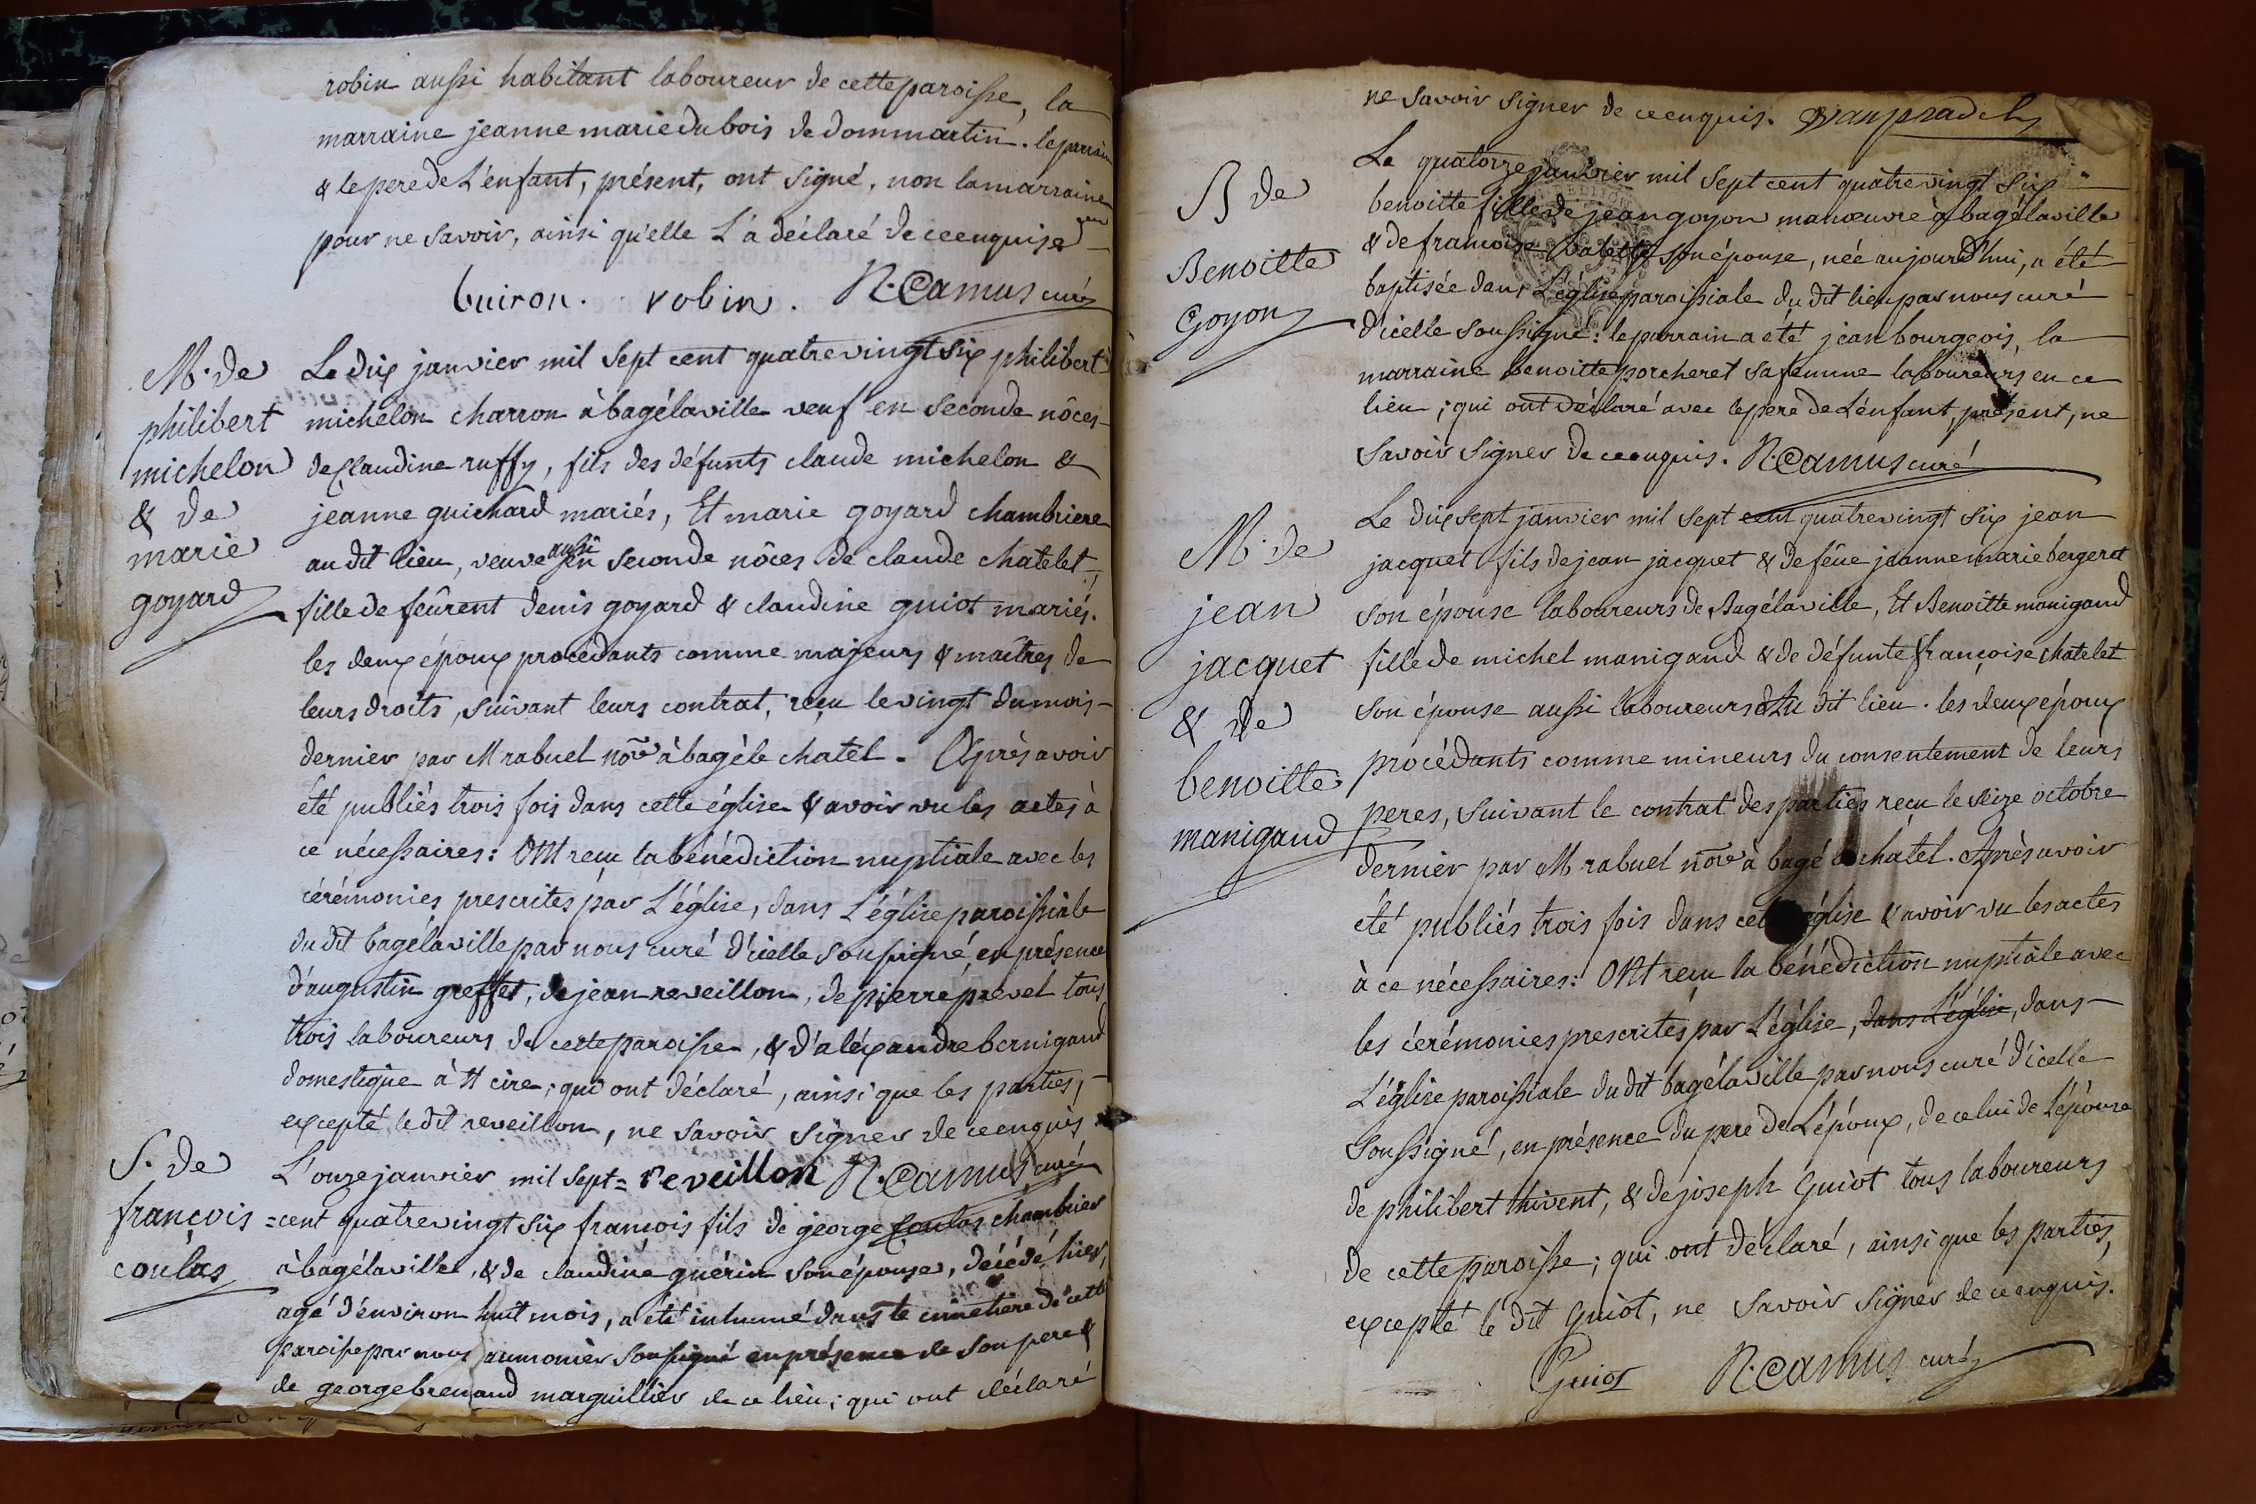 robin aussi habitant laboureur de cette paroisse, la
marraine jeanne marie dubois de dommartin. le parrain
& le pere de L'enfant, présent, ont signé, non la marraine
pour ne savoir, ainsi qu'elle L'a déclaré de ce enquise
buiron. robin. N. Camus curé
M. de
philibert
michelon
& de
marie
goyard
Le dix janvier mil sept cent quatrevingt six philibert
michelon charron à bagélaville veuf en seconde nôces
de Claudine ruffy, fils des défunts claude michelon &
jeanne guichard mariés, Et marie goyard chambriere
au dit lieu, veuve aussi en seconde nôces de claude chatelet,
fille de feûrent denis goyard & claudine guiot mariés.
les deux époux procédants comme majeurs & maîtres de
leurs droits, suivant leurs contrat, reçu le vingt du mois
dernier par M rabuel nõre à bagé le chatel. Après avoir
été publiés trois fois dans cette église & avoir vu les actes à
ce nécessaires: ONt reçu la bénédiction nuptiale avec les
cérémonies prescrites par L'église, dans L'église paroissiale
du dit bagélaville par nous curé d'icelle soussigné, en présence
d'augustin greffet, de jean reveillon, de pierre prevel tous
trois laboureurs de cette paroisse, & d'aléxandre bernigaud
domestique à St cire; qui ont déclaré, ainsi que les parties,
excepté le dit reveillon, ne savoir signer de ce enquis
reveillon N. Camus curé
S. de
françois
coulas
L'onze janvier mil sept=
=cent quatrevingt six françois fils de george coulas chambrier
à bagélaville, & de claudine guérin son épouse, décédé hier,
agé d'environ huit mois, a été inhumé dans le cimetiere de cette
paroisse par nous aumonier soussigné en présence de son pere &
de george brenaud marguillier de ce lieu; qui ont déclaré
ne savoir signer de ce enquis.
B de
Benoitte
Goyon
Le quatorze janvier mil sept cent quatrevingt six
benoitte fille de jean goyon manœuvre à bagélaville
& de francoise son épouse, née aujourd'hui, a été
baptisée dans L'église paroissiale du dit lieu par nous curé
d'icelle soussigné: le parrain a été jean bourgeois, la
marraine benoitte porcheret sa femme laboureurs en ce
lieu; qui ont déclaré avec le pere de L'enfant, présent, ne
savoir signer de ce enquis. N. Camus curé
M. de
jean
jacquet
& de
benoitte
manigaud
Le dix sept janvier mil sept cent quatrevingt six jean
jacquet fils de jean jacquet & de feüe jeanne marie bergerot
son épouse laboureurs de Bagélaville, Et Benoitte manigaud
fille de michel manigaud & de défunte françoise chatelet
son épouse aussi laboureurs du dit lieu. les deux époux
procédants comme mineurs du consentement de leurs
peres, suivant le contrat des parties reçu le seize octobre
dernier par M rabuel nõre à bagé le chatel. Après avoir
été publiés trois fois dans cette église & avoir vu les actes
à ce nécessaires: ONt reçu la bénédiction nuptiale avec
les cérémonies prescrites par L'église, dans L'église, dans
L'église paroissiale du dit bagélaville par nous curé d'icelle
soussigné, en présence du pere de L'époux, de celui de L'épouse
de philibert thivent, & de joseph Guiot tous laboureurs
de cette paroisse; qui ont déclaré, ainsi que les parties,
excepté le dit Guiot, ne savoir signer de ce enquis.
Guiot N. Camus curé